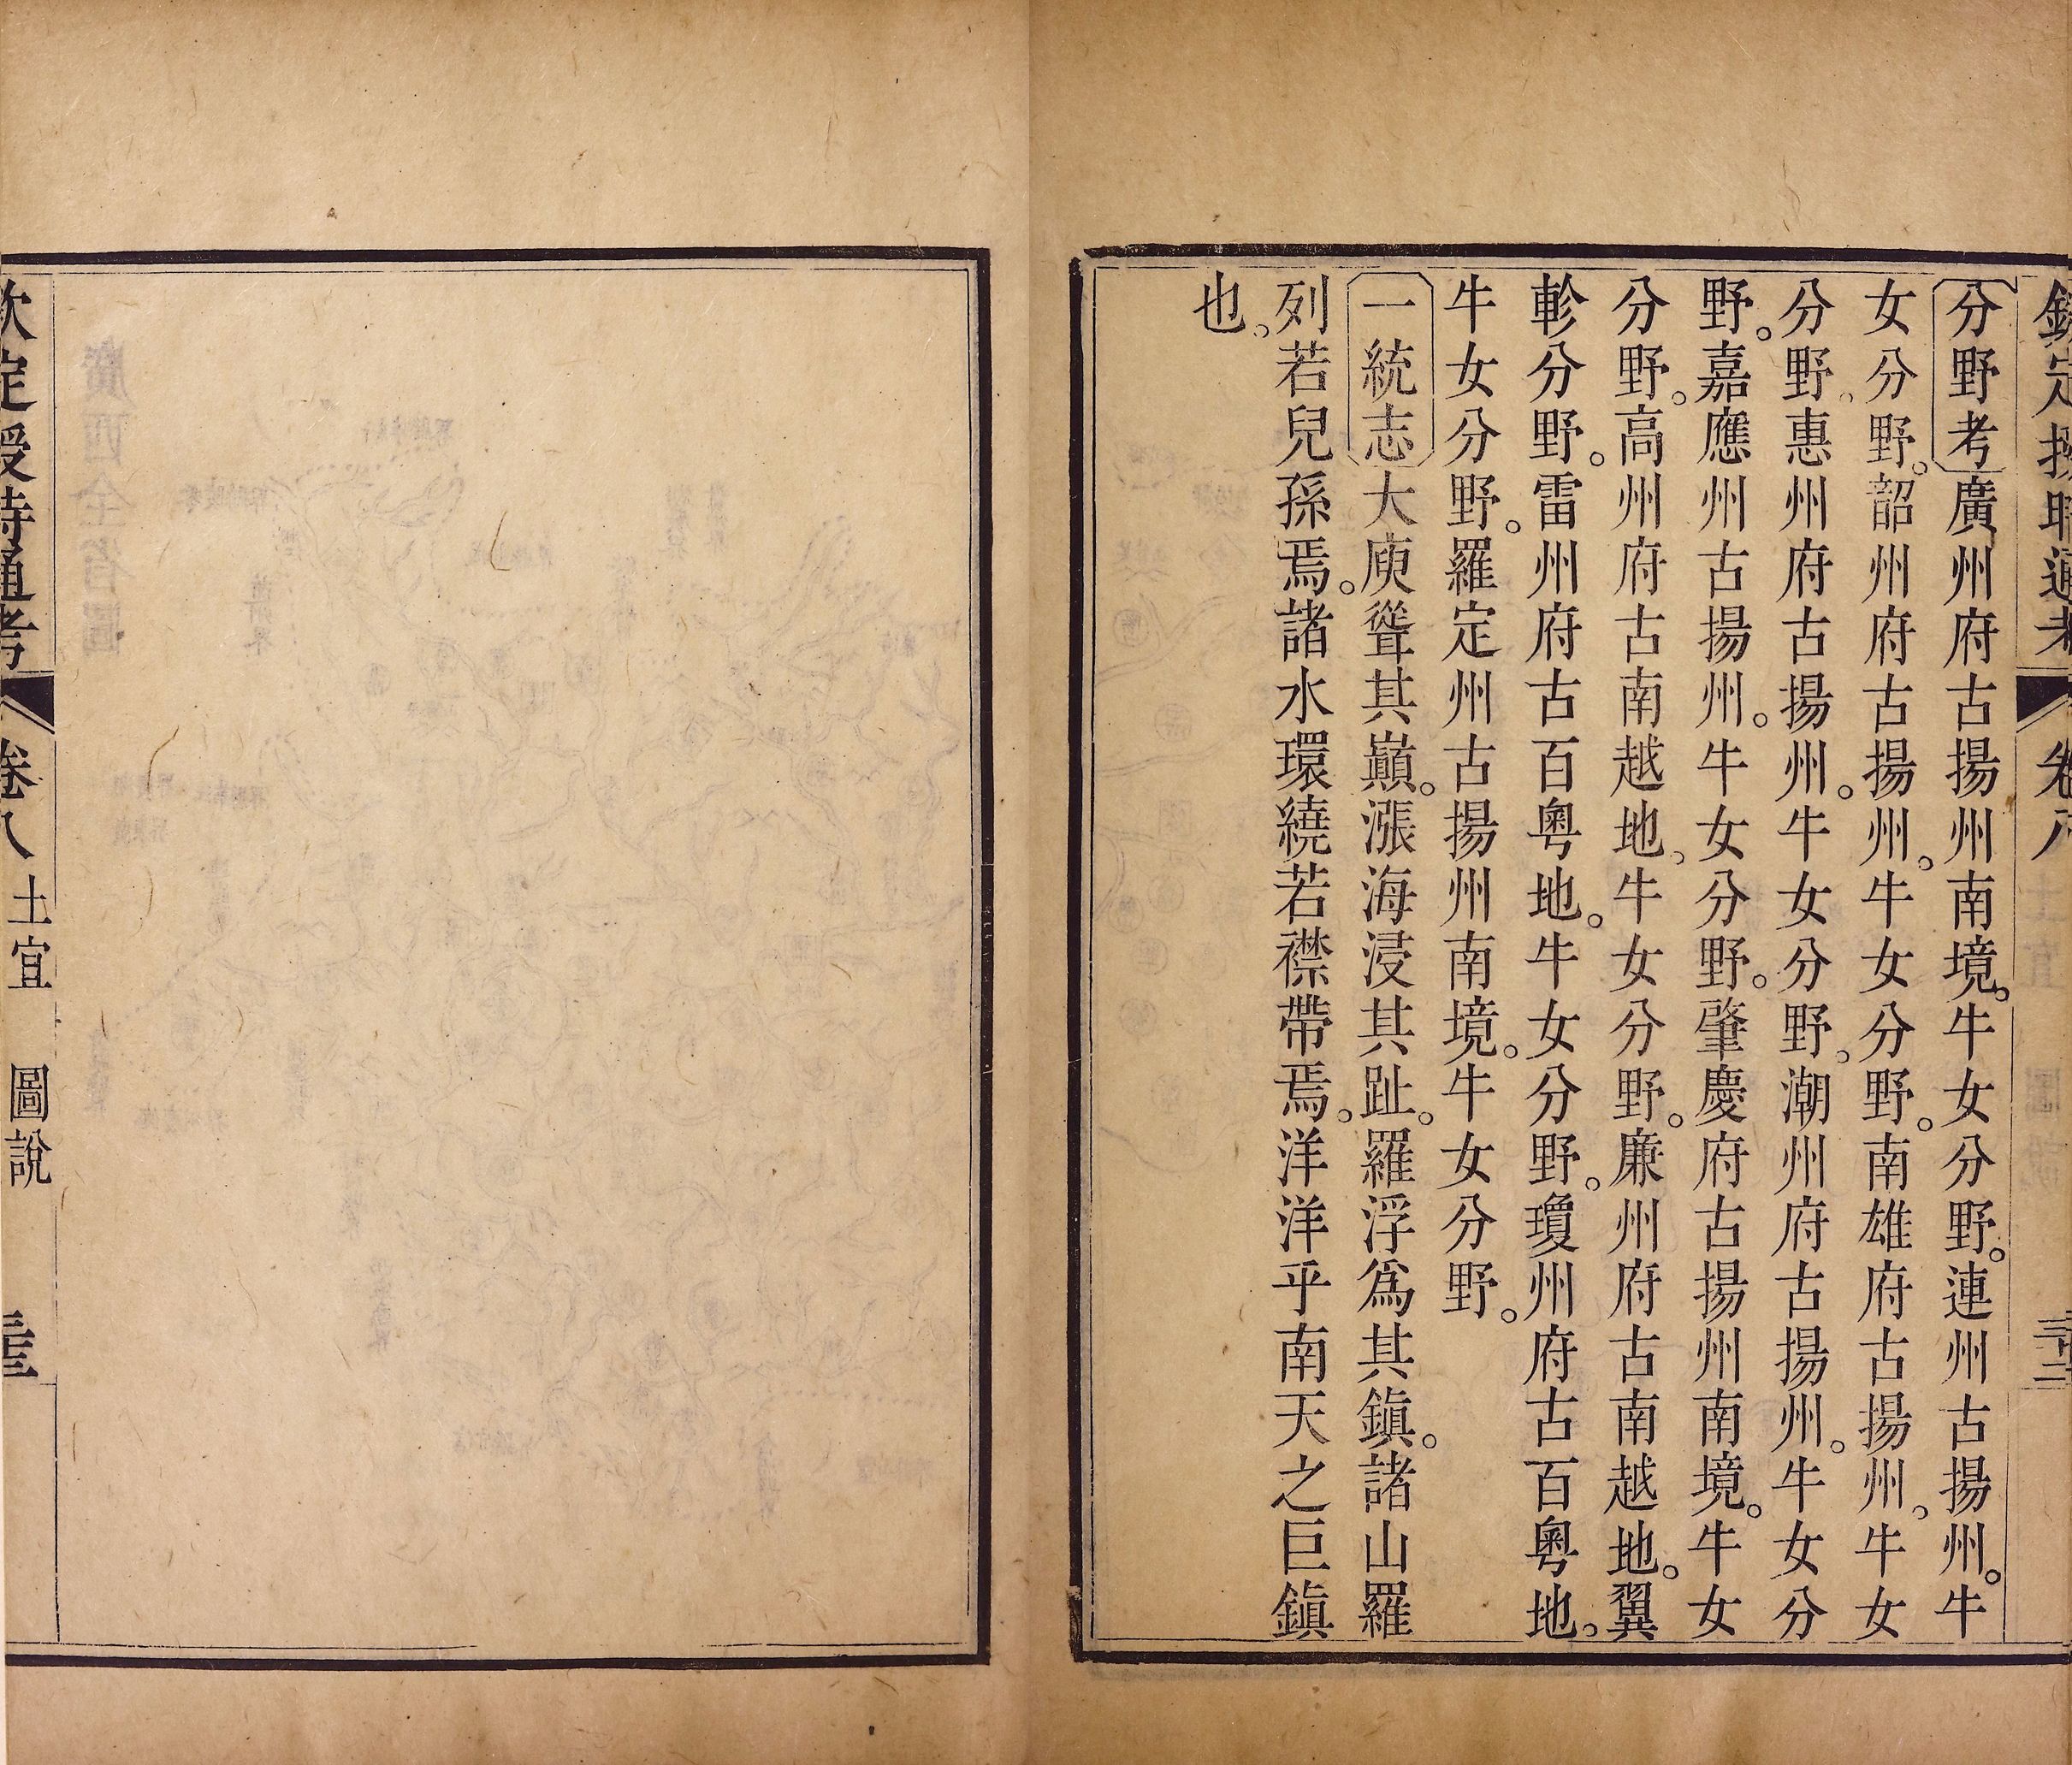 欽定授時通考 卷八
分野考廣州府古揚州南境。牛女分野。連州古揚州。牛
女分野。韶州府古揚州。牛女分野。南雄府古揚州。牛女
分野。惠州府古揚州。牛女分野。潮州府古揚州。牛女分
野。嘉應州古揚州。牛女分野。肇慶府古揚州南境。牛女
分野。高州府古南越地。牛女分野。廉州府古南越地。翼
軫分野。雷州府古百粵地。牛女分野。瓊州府古百粵地。
牛女分野。羅定州古揚州南境。牛女分野。
一統志大庾聳其巔。漲海浸其趾。羅浮爲其鎭。諸山羅
列若兒孫焉。諸水環繞若襟帶焉。洋洋乎南天之巨鎭
也。
廣西全省圖
欽定授時通考 卷八 土宜 圖說